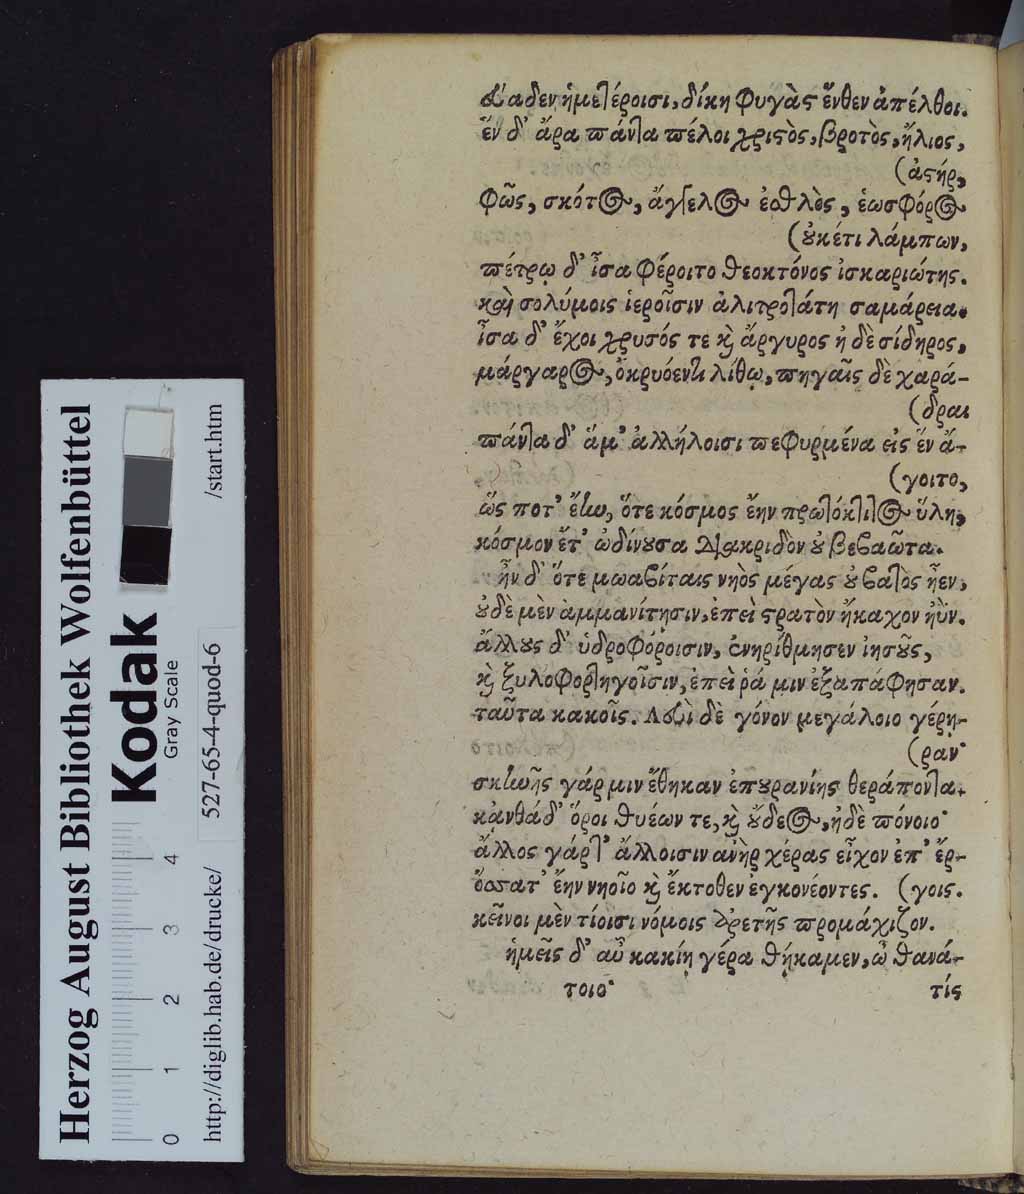 εὔαδεν ἡμετέροισι, δίκη φυγὰς ἔνθεν ἀπέλθοι.
ἓν δ' ἄρα πάντα πέλοι χριστὸς, βροτὸς, ἥλιος,
(ἀστήρ,
φῶς, σκότος, ἄγγελος ἐσθλὸς, ἑωσφόρος
(οὐκέτι λάμπων,
πέτρῳ δ' ἶσα φέροιτο θεοκτόνος ἰσκαριώτης.
καὶ σολύμοις ἱεροῖσιν ἀλιτροτάτη σαμάρεια.
ἶσα δ' ἔχοι χρυσός τε καὶ ἄργυρος ἠδὲ σίδηρος,
μάργαρος, ὀκρυόεντι λίθῳ, πηγαῖς δὲ χαρά-
(δραι
πάντα δ' ἅμ' ἀλλήλοισι πεφυρμένα εἰς ἓν ἄ-
(γοιτο,
ὥς ποτ' ἔην, ὅτε κόσμος ἔην πρωτόκτιτος ὕλη,
κόσμον ἔτ' ὠδίνουσα διακριδὸν οὐ βεβαῶτα.
ἦν δ' ὅτε μωαβίταις νηὸς μέγας οὐ βατὸς ἦεν,
οὐδὲ μὲν ἀμμανίτησιν, ἐπεὶ στρατὸν ἤκαχον ἠΰν.
ἄλλους δ' ὑδροφόροισιν, ἐνηρίθμησεν ἰησοῦς,
καὶ ξυλοφορτηγοῖσιν, ἐπεὶ ῥά μιν ἐξαπάφησαν.
ταῦτα κακοῖς. Λευὶ δὲ γόνον μεγάλοιο γέρη-
(ραν·
σκηνῆς γάρ μιν ἔθηκαν ἐπουρανίης θεράποντα.
κἀνθάδ' ὅροι θυέων τε, καὶ οὔδεος, ἠδὲ πόνοιο·
ἄλλος γάρτ' ἄλλοισιν ἀνὴρ χέρας εἶχον ἐπ' ἔρ-
ὅσσατ' ἔην νηοῖο καὶ ἔκτοθεν ἐγκονέοντες. (γοις.
κεῖνοι μὲν τίοισι νόμοις ἀρετῆς προμάχιζον.
ἡμεῖς δ' αὖ κακίῃ γέρα θήκαμεν, ὦ θανά-
τοιο· τίς
Herzog August Bibliothek Wolfenbüttel
Kodak
Gray Scale
0 1 2 3 4
http://diglib.hab.de/drucke/ 527-65-4-quod-6 /start.htm